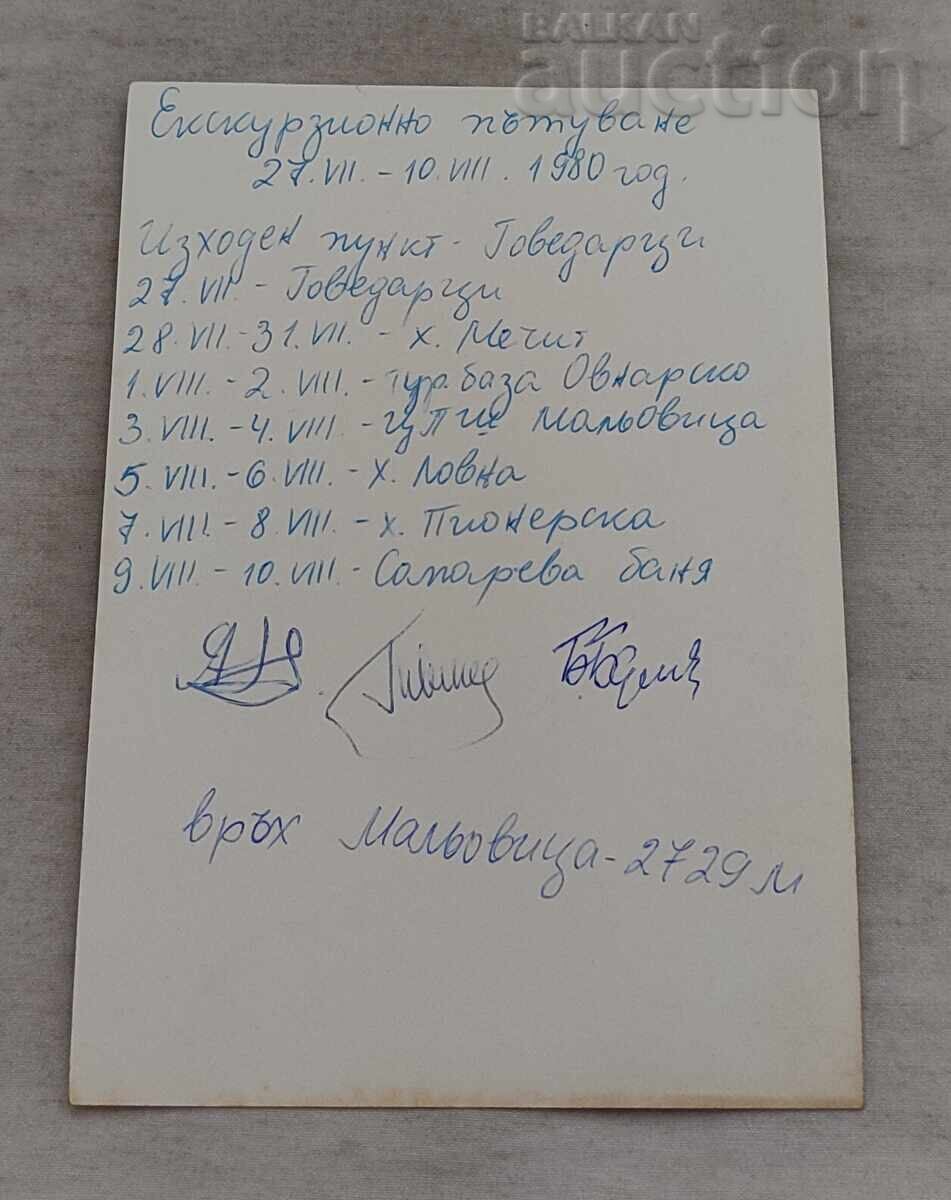 BALKAN
auction
Екскурзионно пътуване
27.VII. - 10.VIII. 1980 год.
Изходен пункт - Говедарци
27.VII. - Говедарци
28.VII. - 31.VII. - х. Мечит
1.VIII. - 2.VIII. - Тур. база Овнарско
3.VIII. - 4.VIII. - Мальовица
5.VIII. - 6.VIII. - х. Ловна
7.VIII. - 8.VIII. - х. Пионерска
9.VIII. - 10.VIII. - Сапарева баня
връх Мальовица - 2729 м